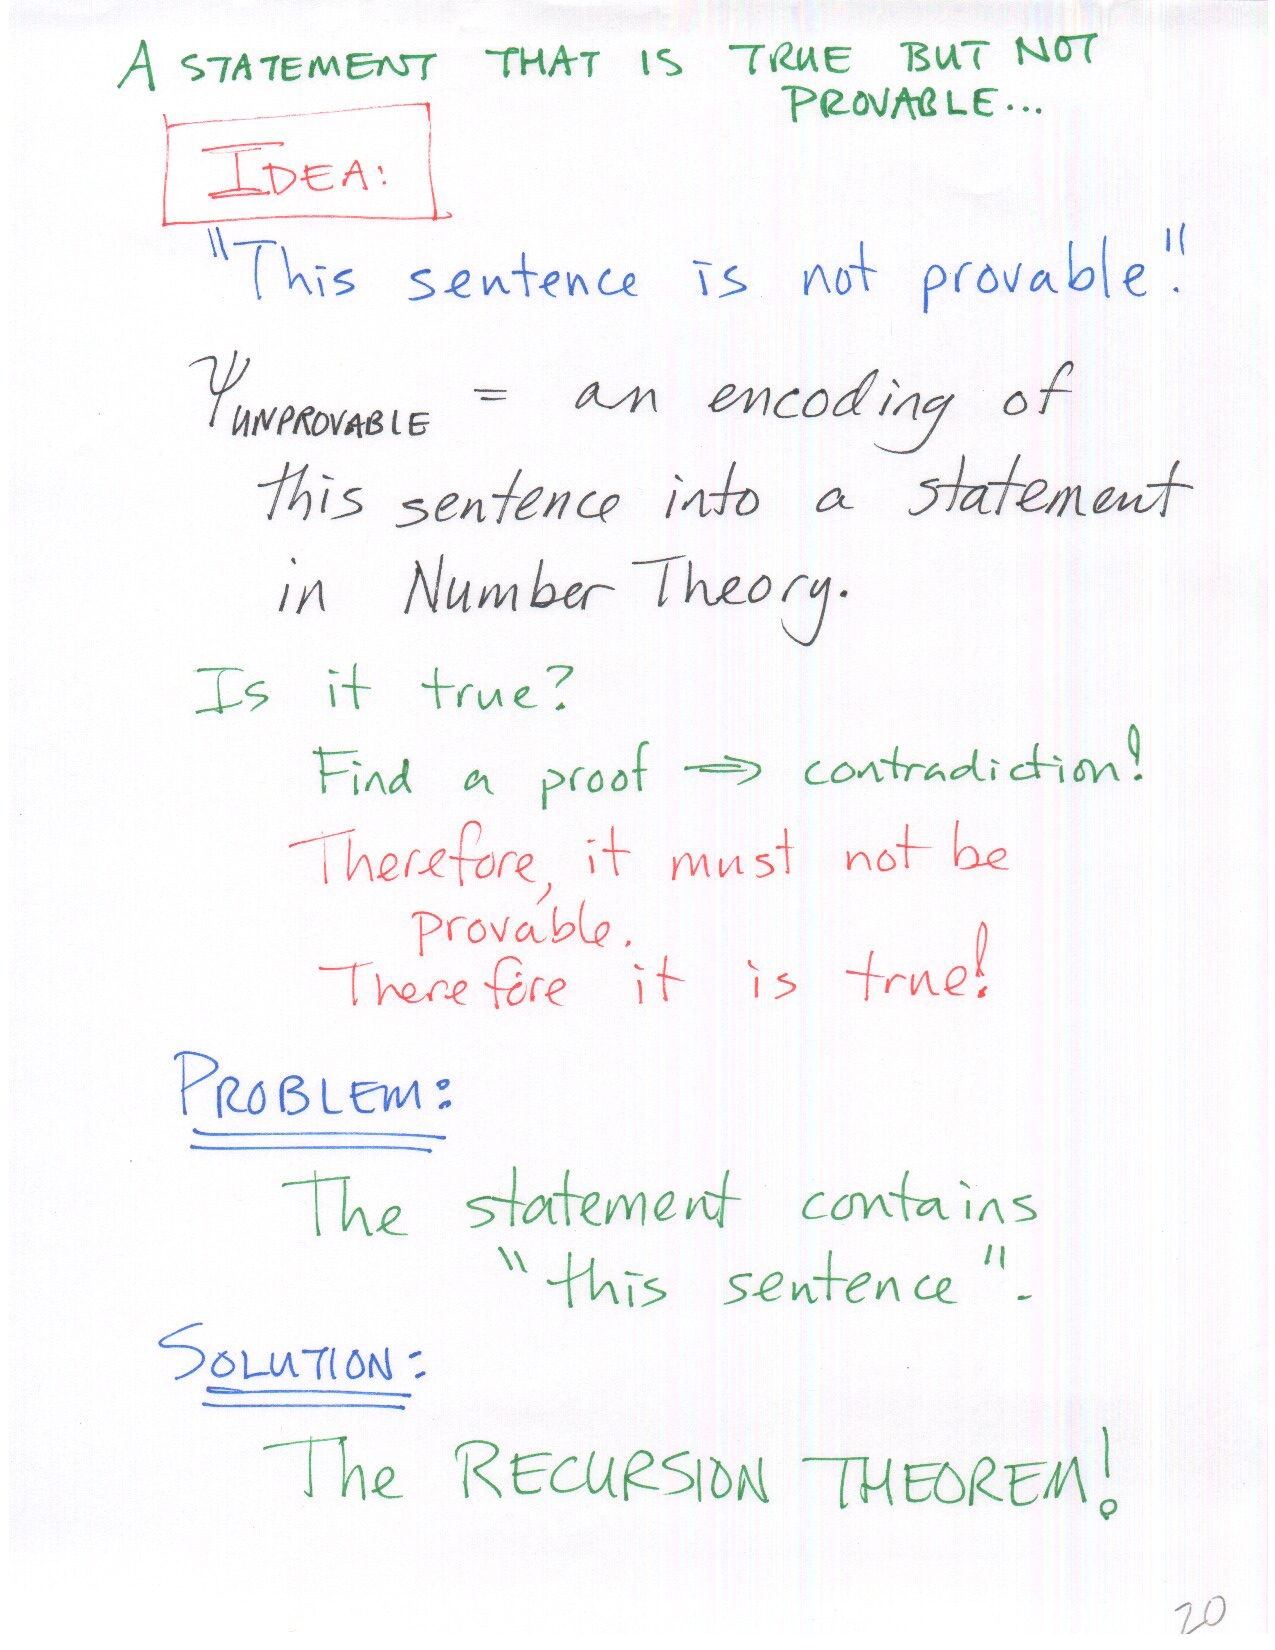 A STATEMENT THAT IS TRUE BUT NOT
PROVABLE...
IDEA:
"This sentence is not provable".
ψ UNPROVABLE = an encoding of
this sentence into a statement
in Number Theory.
Is it true?
Find a proof ⇒ contradiction!
Therefore, it must not be
provable.
Therefore it is true!
PROBLEM:
The statement contains
"this sentence".
SOLUTION:
The RECURSION THEOREM!
20